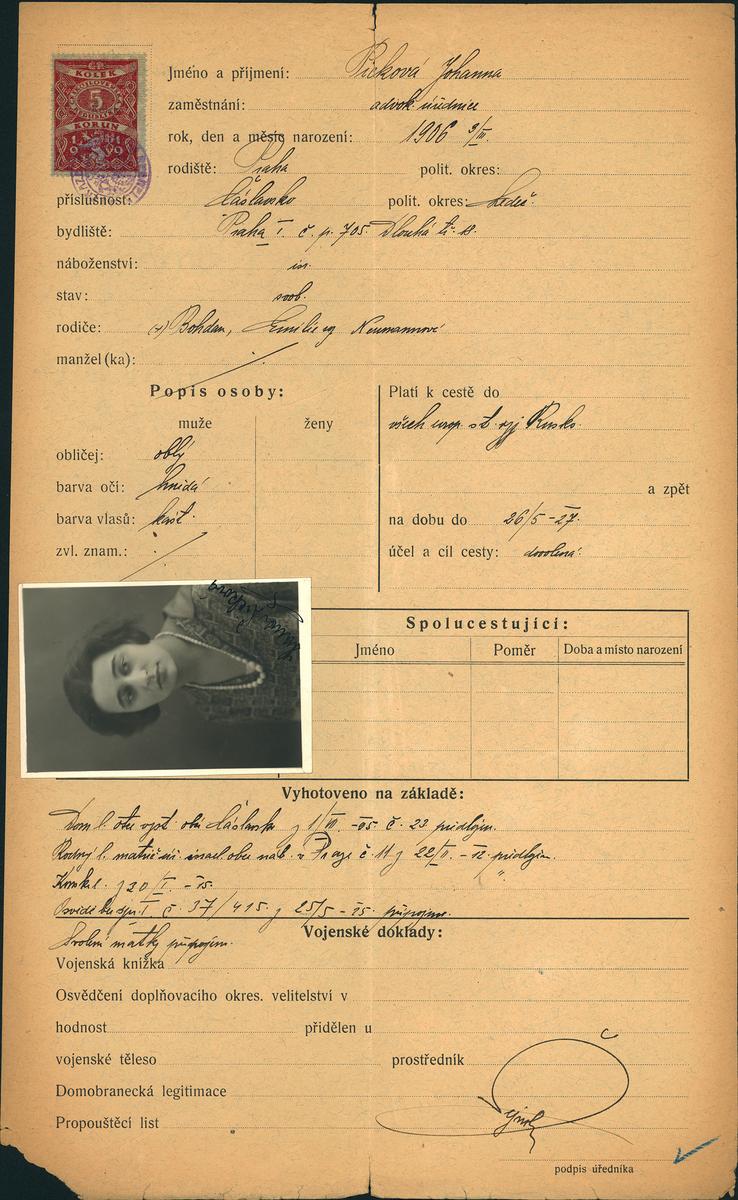 KOLEK
5
KORUN
1919
Jméno a příjmení: Picková Johanna
zaměstnání: advok. úřednice
rok, den a měsíc narození: 1906 9/III.
rodiště: Praha polit. okres:
příslušnost: Čáslavsko polit. okres: Ledeč.
bydliště: Praha I. č. p. 705. Dlouhá tř.
náboženství: isr.
stav: svob.
rodiče: (+) Bohdan, Emilie Neumannové
manžel (ka):
Popis osoby:
muže ženy
obličej: oblý
barva očí: hnědá
barva vlasů: kašt.
zvl. znam.:
Platí k cestě do
všech evrop. st. vyj. Rusko.
a zpět
na dobu do 26/5 - 27.
účel a cíl cesty: dovolená.
Spolucestující:
Jméno Poměr Doba a místo narození
Vyhotoveno na základě:
Dom. l. obce Čáslavsko z 1/ č. 23 předlojen.
Rodný l. israel. obce náb. v Praze č. 11 z 22/II. - 12. předlojen.
Konkl. z 20/I. - 25.
I. č. 37/415. z 25/5 - 25. připojeno.
Svolení matky připojeno.
Vojenské doklady:
Vojenská knížka
Osvědčení doplňovacího okres. velitelství v
hodnost přidělen u
vojenské těleso prostředník
Domobranecká legitimace
Propouštěcí list
podpis úředníka